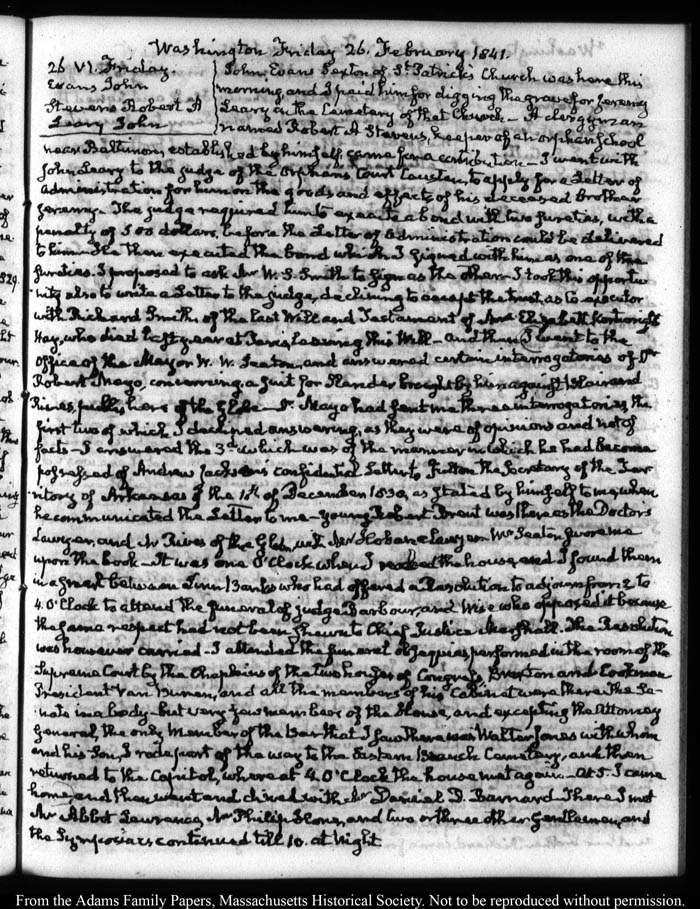 Washington Friday 26. February 1841.
26 VI. Friday.
Evans John
Stevens Robert A
Leary John
John Evans Sexton of St. Patrick's Church was here this
morning, and I paid him for digging the grave for Jeremy
Leary in the Cemetery of that Church – A clergyman
named Robert A Stevens, keeper of an orphan School
near Baltimore, established by himself, came for a contribution – I went with
John Leary to the judge of the Orphans Court Causten, to apply for a Letter of
Administration for him on the goods and effects of his deceased brother
Jeremy. The judge required him to execute a bond with two sureties, with a
penalty of 500 dollars, before the Letter of Administration could be delivered
to him – He there executed the bond which I signed with him as one of the
sureties. I proposed to ask Mr W. S. Smith to sign as the other – I took this opportu-
nity also to write a Letter to the judge, declining to accept the trust, as Co executor
with Richard Smith, of the Last Will and Testament of Mrs Elizabeth Kortright
Hay, who died last year at Paris, leaving this Will – and then I went to the
Office of the Mayor W. W. Seaton, and answered certain interrogatories of Dr
Robert Mayo, concerning a suit for Slander brought by him against Blair and
Rives, publishers of the Globe – Dr Mayo had sent me three interrogatories, the
first two of which I declined answering, as they were of opinions and not of
facts – I answered the 3d which was of the manner in which he had become
possessed of Andrew Jackson's confidential Letter to Fulton the Secretary of the Ter-
ritory of Arkansas of the 10th of December 1830, as stated by himself to me, when
he communicated the Letter to me – young Robert Brent was there as the Doctors
Lawyer, and Mr Rives of the Globe, with Mr Hoban a Lawyer Mr Seaton swore me
upon the book – It was one O'Clock when I reached the house, and I found them
in a between Linn Banks who had offered a Resolution to adjourn from 2 to
4 O'Clock to attend the funeral of judge Barbour, and Wise who opposed it because
the same respect had not been shewn to Chief Justice Marshall. The Resolution
was however carried – I attended the funeral obsequies performed in the room of the
Supreme Court by the Chaplains of the two houses of Congress, and Cookman
President Van Buren, and all the members of his Cabinet were there The Se-
nate in a body – but very few members of the House, and excepting the Attorney
General, the only member of the Bar that I saw there was Walter Jones with whom
and his Son, I rode part of the way to the Eastern Branch Cemetery, and then
returned to the Capitol, where at 4 O'Clock the house met again – At 5. I came
home, and then went and dined with Mr Daniel D. Barnard There I met
Mr Abbot Lawrence, Mr Philip Hone, and two or three other Gentlemen, and
the Symposiacs continued till 10. at Night
From the Adams Family Papers, Massachusetts Historical Society. Not to be reproduced without permission.